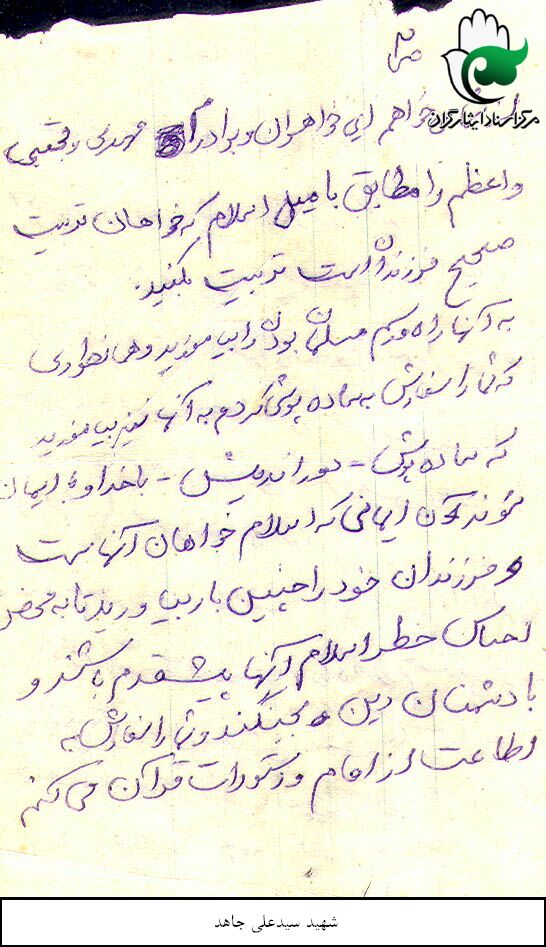 ۳
مرکز اسناد ایثارگران
از شما می‌خواهم ای خواهران و برادرانم مهدی و مجتبی
و اعظم را مطابق با میل اسلام که خواهان تربیت
صحیح فرزندان است تربیت بکنید.
به آنها راه و رسم مسلمان بودن را بیاموزید و همانطوری
که شما را سفارش به ساده پوشی کردم به آنها نیز بیاموزید
که ساده پوش - دوراندیش - باخدا و با ایمان
شوند آن ایمانی که اسلام خواهان آنها ست
و فرزندان خود را چنین بار بیاورید تا به محض
احساس خطر اسلام آنها پیشقدم باشند و
با دشمنان دین بجنگند و شما را سفارش به
اطاعت از امام و دستورات قرآن می کنم
شهید سیدعلی جاهد